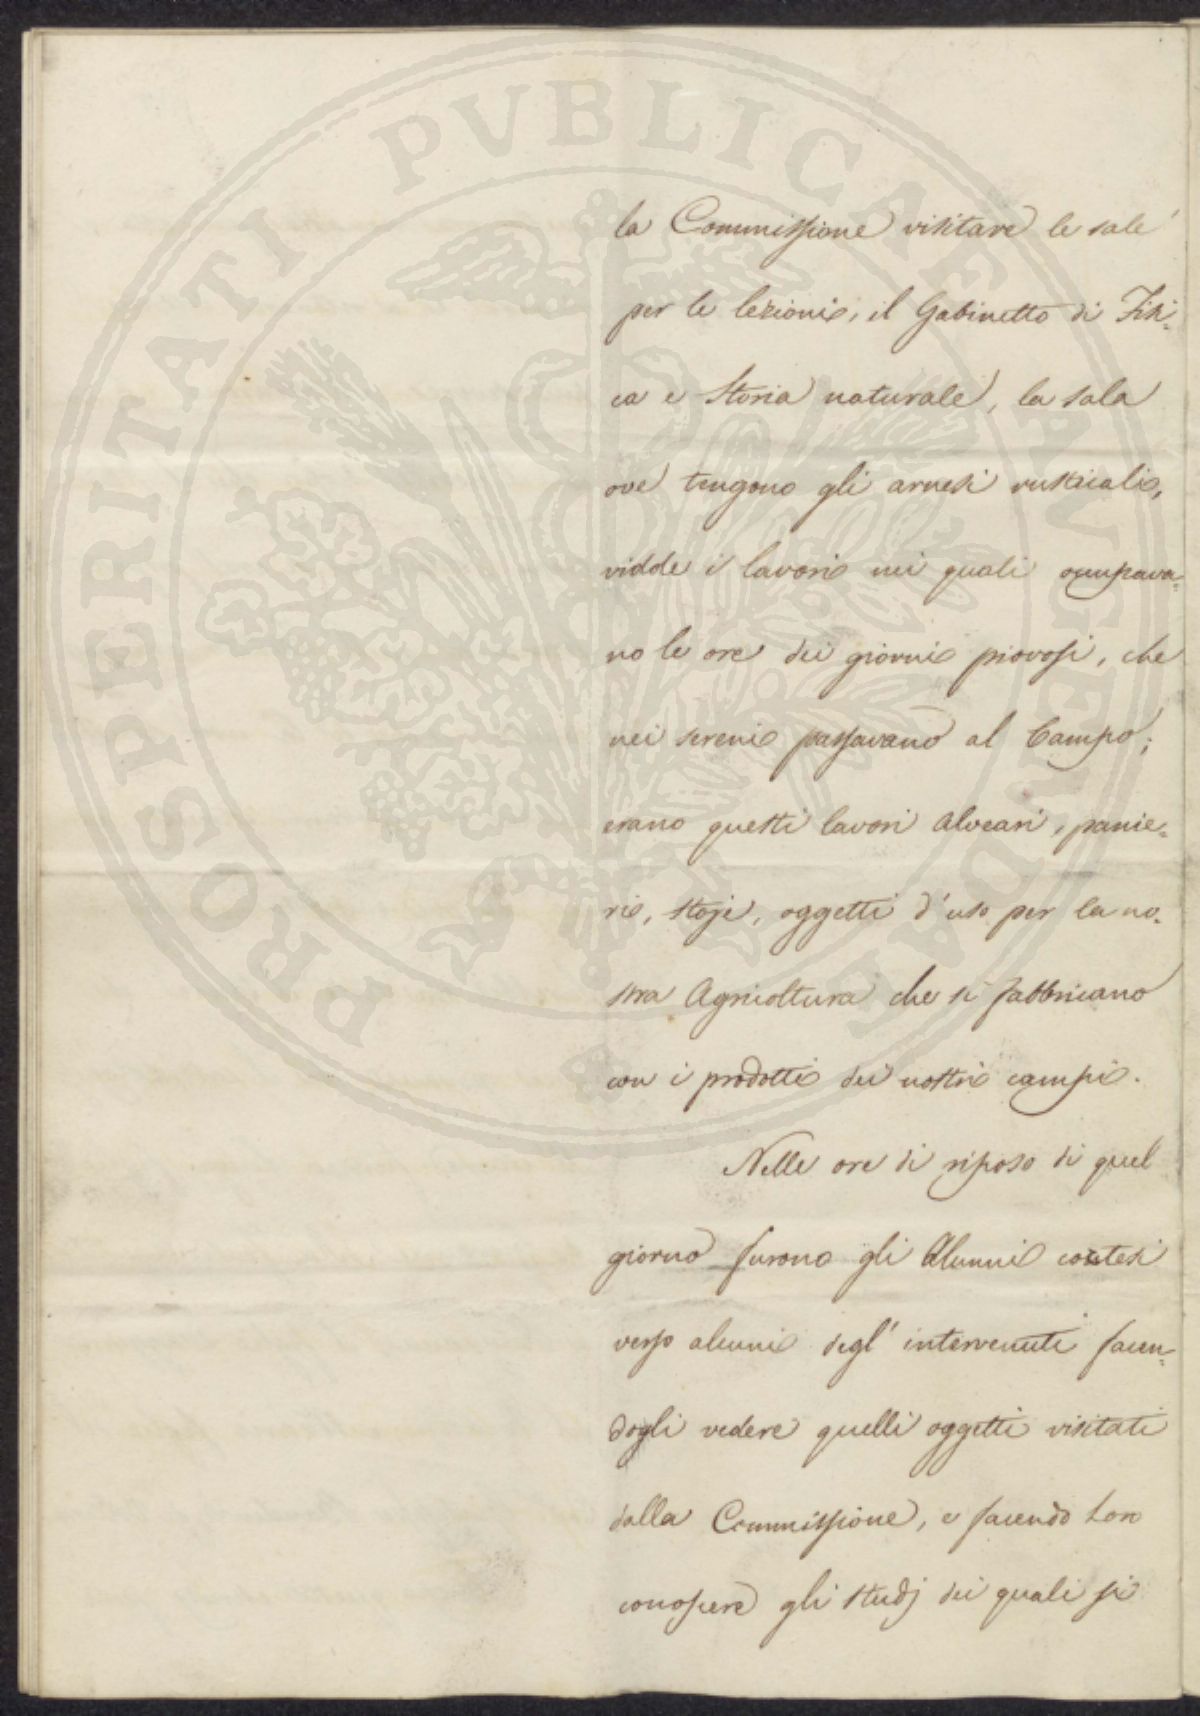 PROSPERITATI PVBLICAE AVGENDAE
la Commissione visitare le sale
per le lezioni, il Gabinetto di Fisi-
ca e Storia naturale, la sala
ove tengono gli arnesi rusticali,
vidde i lavori nei quali occupava-
no le ore dei giorni piovosi, che
nei sereni passavano al Campo;
erano questi lavori alveari, panie-
ri, stoje, oggetti d'uso per la no-
stra Agricoltura che si fabbricano
con i prodotti dei nostri campi.
Nelle ore di riposo di quel
giorno furono gli Alunni cortesi
verso alcuni degl'intervenuti facen-
dogli vedere quelli oggetti visitati
dalla Commissione, e facendo Loro
conoscere gli studj dei quali si